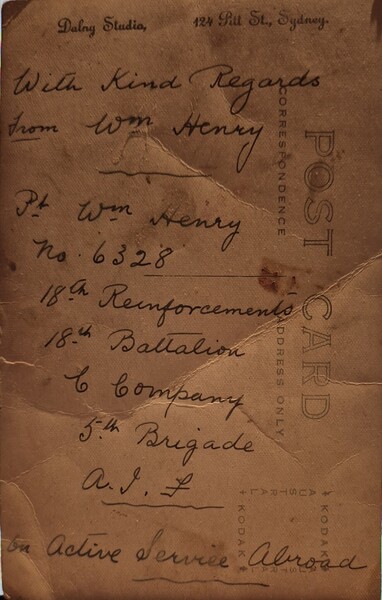 Dalny Studio, 124 Pitt St., Sydney.
With Kind Regards
From Wm Henry
Pt Wm Henry
No. 6328
18th Reinforcements
18th Battalion
C Company
5th Brigade
A. I. F
On Active Service Abroad
POST CARD
CORRESPONDENCE
ADDRESS ONLY
KODAK
AUSTRALIA
KODAK